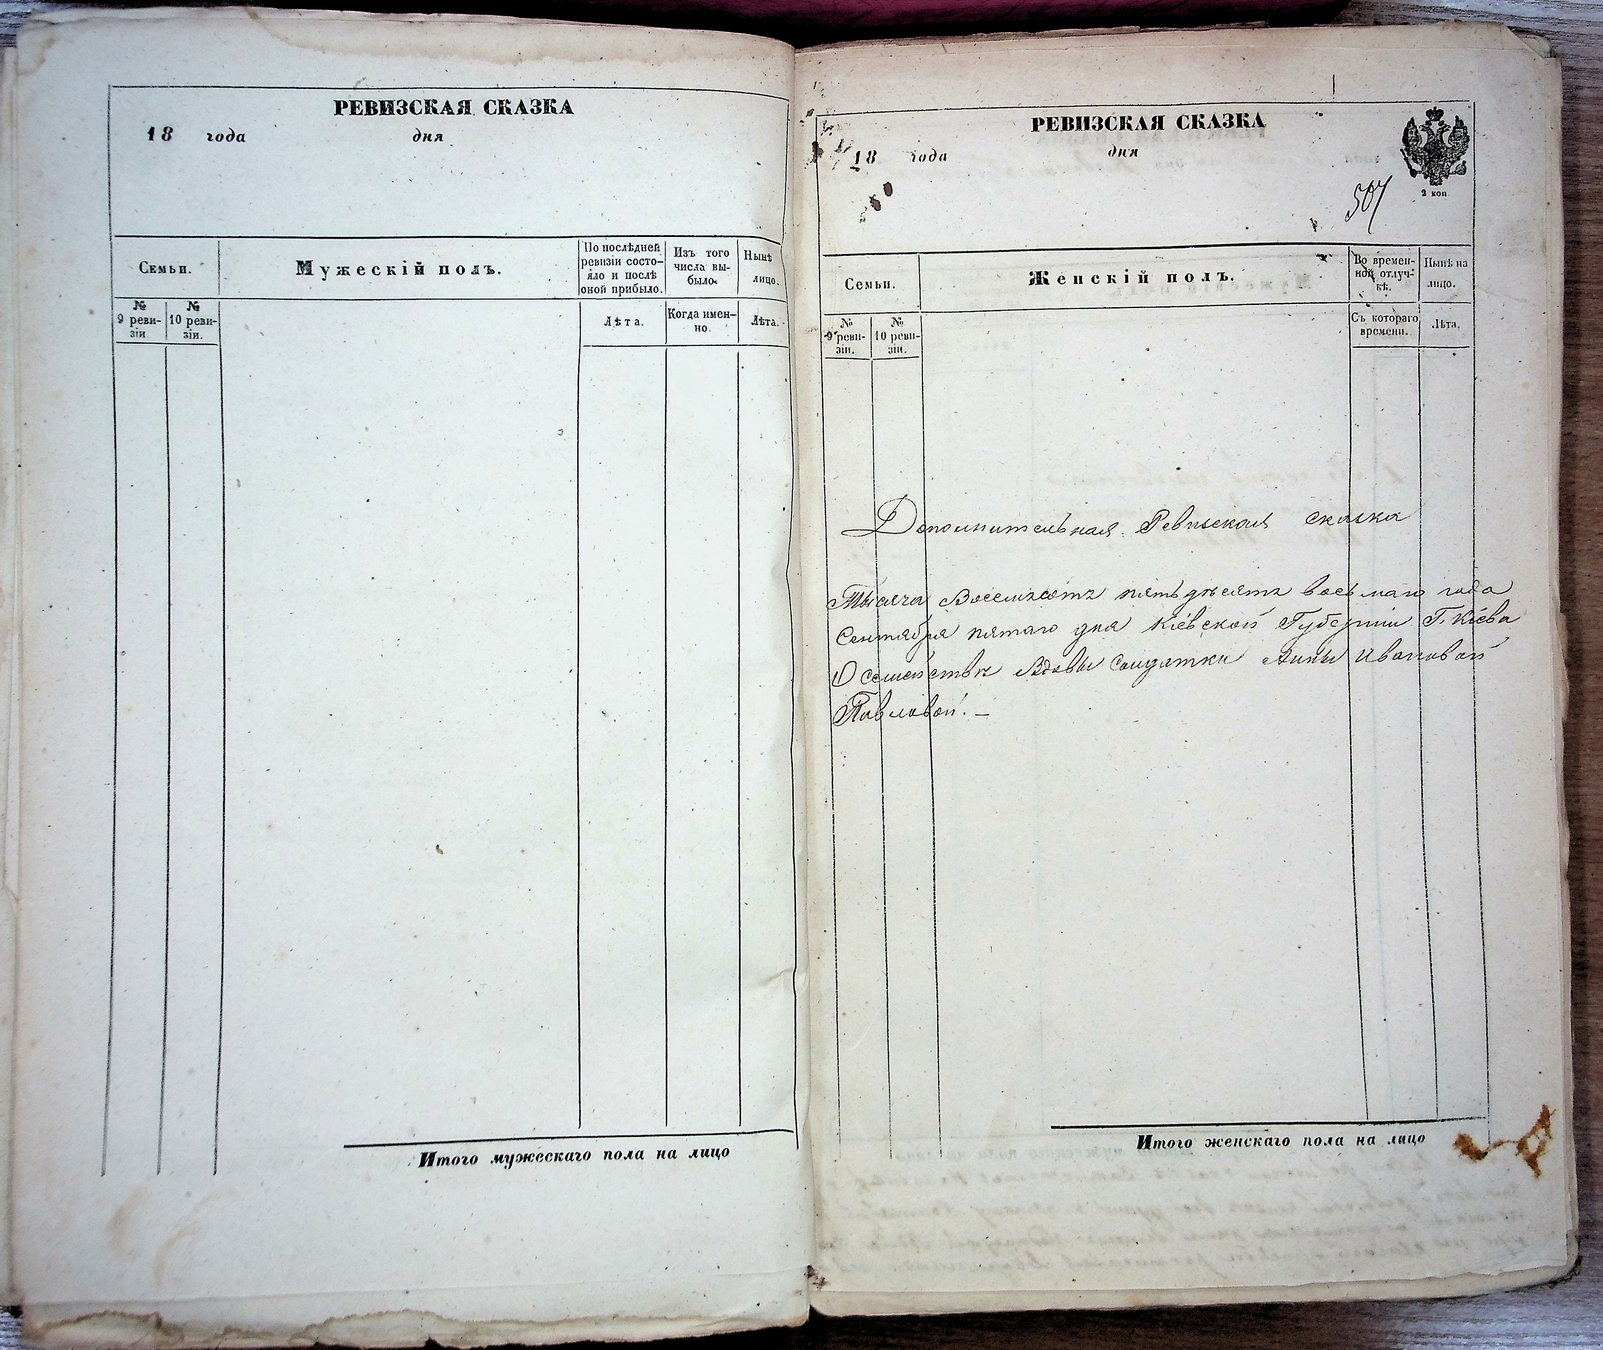 РЕВИЗСКАЯ СКАЗКА
18 года дня
Семьи.
Мужескій полъ.
По послѣдней
ревизіи состо-
яло и послѣ
оной прибыло.
Изъ того
числа вы-
было.
Нынѣ
лицо.
№
9 реви-
зіи
№
10 реви-
зіи.
Лѣта.
Когда имен-
но.
Лѣта.
Итого мужескаго пола на лицо
РЕВИЗСКАЯ СКАЗКА
18 года дня
2 коп
507
Семьи.
Женскій полъ.
Во времен-
ной отлуч-
кѣ.
Нынѣ на
лицо.
№
9 реви-
зіи.
№
10 реви-
зіи.
Съ котораго
времени.
Лѣта.
Дополнительная Ревизская сказка
Тысяча Восемьсотъ пятьдесятъ восьмаго года
Сентября пятаго дня Кіевской Губерніи Г. Кіева
О семействѣ Вдовы Солдатки Анны Ивановой
Павловой. —
Итого женскаго пола на лицо